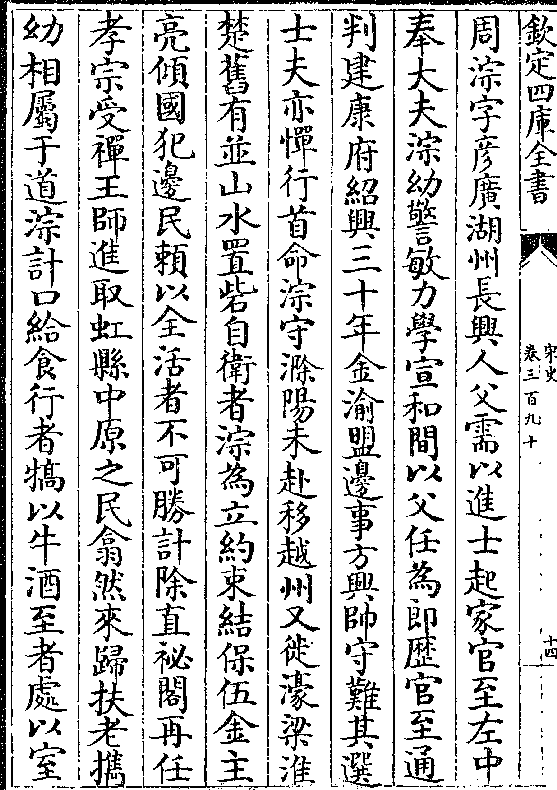 欽定四庫全書
宋史
卷三百九十
十四
周淙字彦廣湖州長興人父需以進士起家官至左中
奉大夫淙幼警敏力學宣和間以父任為郎歴官至通
判建康府紹興三十年金渝盟邊事方興帥守難其選
士夫亦憚行首命淙守滁陽未赴移越州又徙濠梁淮
楚舊有並山水置砦自衛者淙為立約束結保伍金主
亮傾國犯邊民賴以全活者不可勝計除直祕閣再任
孝宗受禪王師進取虹縣中原之民翕然來歸扶老攜
幼相屬于道淙計口給食行者犒以牛酒至者處以室